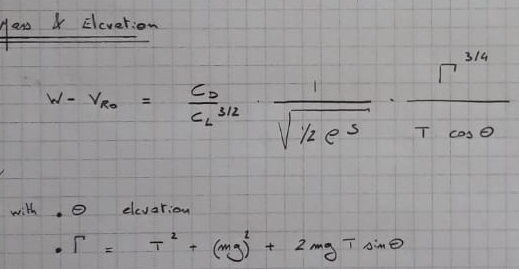 Mass & Elevation
W - V_Ro = C_D / C_L^3/2 · 1 / √(1/2 ρ S) · Γ^3/4 / T cos Θ
with • Θ elevation
• Γ = T^2 + (mg)^2 + 2 mg T sin Θ